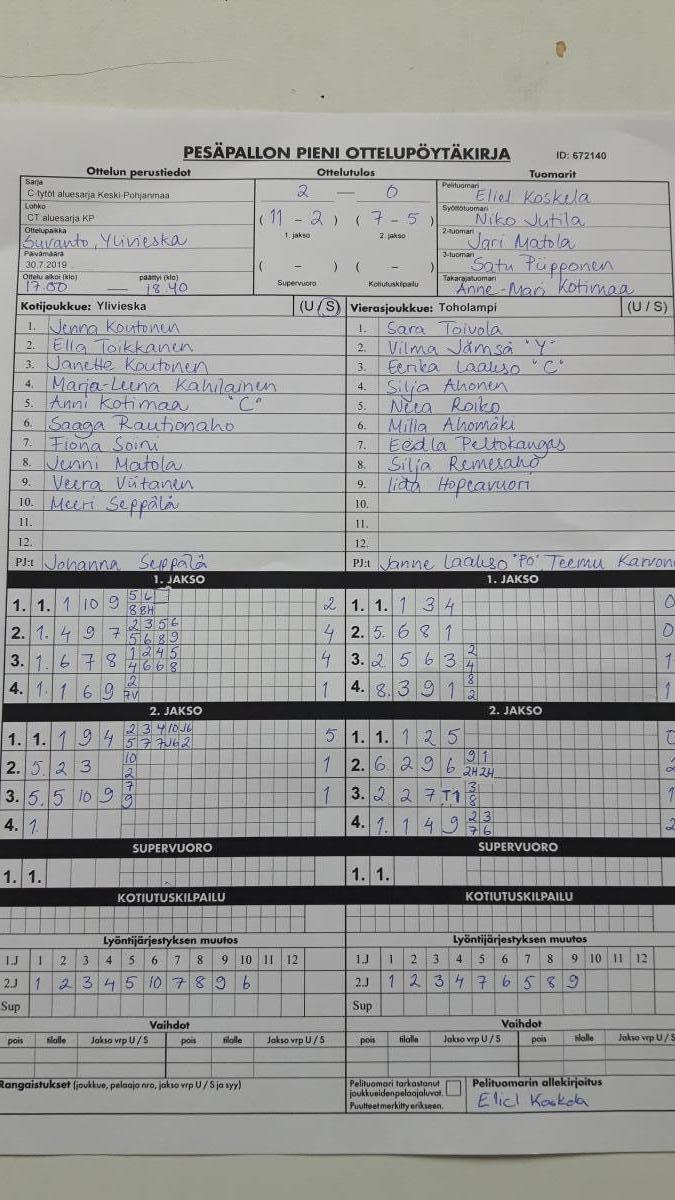 PESÄPALLON PIENI OTTELUPÖYTÄKIRJA ID: 672140
Ottelun perustiedot Ottelutulos Tuomarit
Sarja
C-tytöt aluesarja Keski-Pohjanmaa
Lohko
CT aluesarja KP
Ottelupaikka
Suvanto, Ylivieska
Päivämäärä
30.7.2019
Ottelu alkoi (klo) päättyi (klo)
17.00 — 18.40
2 — 0
( 11 - 2 ) ( 7 - 5 )
1. jakso 2. jakso
( - ) ( - )
Supervuoro Kotiutuskilpailu
Pelituomari Eliel Koskela
Syöttötuomari Niko Jutila
2-tuomari Jari Matola
3-tuomari Satu Piipponen
Takarajatuomari Anne-Mari Kotimaa
Kotijoukkue: Ylivieska (U / S) Vierasjoukkue: Toholampi (U / S)
1. Jenna Koutonen 1. Sara Toivola
2. Ella Toikkanen 2. Vilma Jämsä "Y"
3. Janette Koutonen 3. Eerika Laakso "C"
4. Marja-Leena Kahilainen 4. Silja Ahonen
5. Anni Kotimaa "C" 5. Neea Roiko
6. Saaga Rautionaho 6. Milla Ahomäki
7. Fiona Soini 7. Eedla Peltokangas
8. Jenni Matola 8. Silja Remesaho
9. Veera Viitanen 9. Iida Hopeavuori
10. Meeri Seppälä 10.
11. 11.
12. 12.
PJ:t Johanna Seppälä PJ:t Janne Laakso "PO" Teemu Karvon
1. JAKSO 1. JAKSO
1. 1. 1 10 9 2 1. 1. 1 3 4 0
2. 1. 4 9 7 2 3 5 6 5 6 8 9 4 2. 5. 6 8 1 0
3. 1. 6 7 8 1 2 4 5 4 6 6 8 4 3. 2 5 6 3 2 4 1
4. 1. 1 6 9 2 7V 1 4. 8. 3 9 1 8 2 1
2. JAKSO 2. JAKSO
1. 1. 1 9 4 5 1. 1. 1 2 5 0
2. 5. 2 3 10 2 1 2. 6 2 9 6 9 1 2H 2H 2
3. 5. 5 10 9 7 9 1 3. 2 2 7 T1 3 8 1
4. 1. 4. 1. 1 4 9 2 3 7 6 2
SUPERVUORO SUPERVUORO
1. 1. 1. 1.
KOTIUTUSKILPAILU KOTIUTUSKILPAILU
Lyöntijärjestyksen muutos Lyöntijärjestyksen muutos
1.J 1 2 3 4 5 6 7 8 9 10 11 12 1.J 1 2 3 4 5 6 7 8 9 10 11 12
2.J 1 2 3 4 5 10 7 8 9 6 2.J 1 2 3 4 7 6 5 8 9
Sup Sup
Vaihdot Vaihdot
pois tilalle Jakso vrp U / S pois tilalle Jakso vrp U / S pois tilalle Jakso vrp U / S pois tilalle Jakso vrp U / S
Rangaistukset (joukkue, pelaaja nro, jakso vrp U / S ja syy)
Pelituomari tarkastanut
joukkueiden pelaajaluvat.
Puutteet merkitty erikseen.
Pelituomarin allekirjoitus
Eliel Koskela